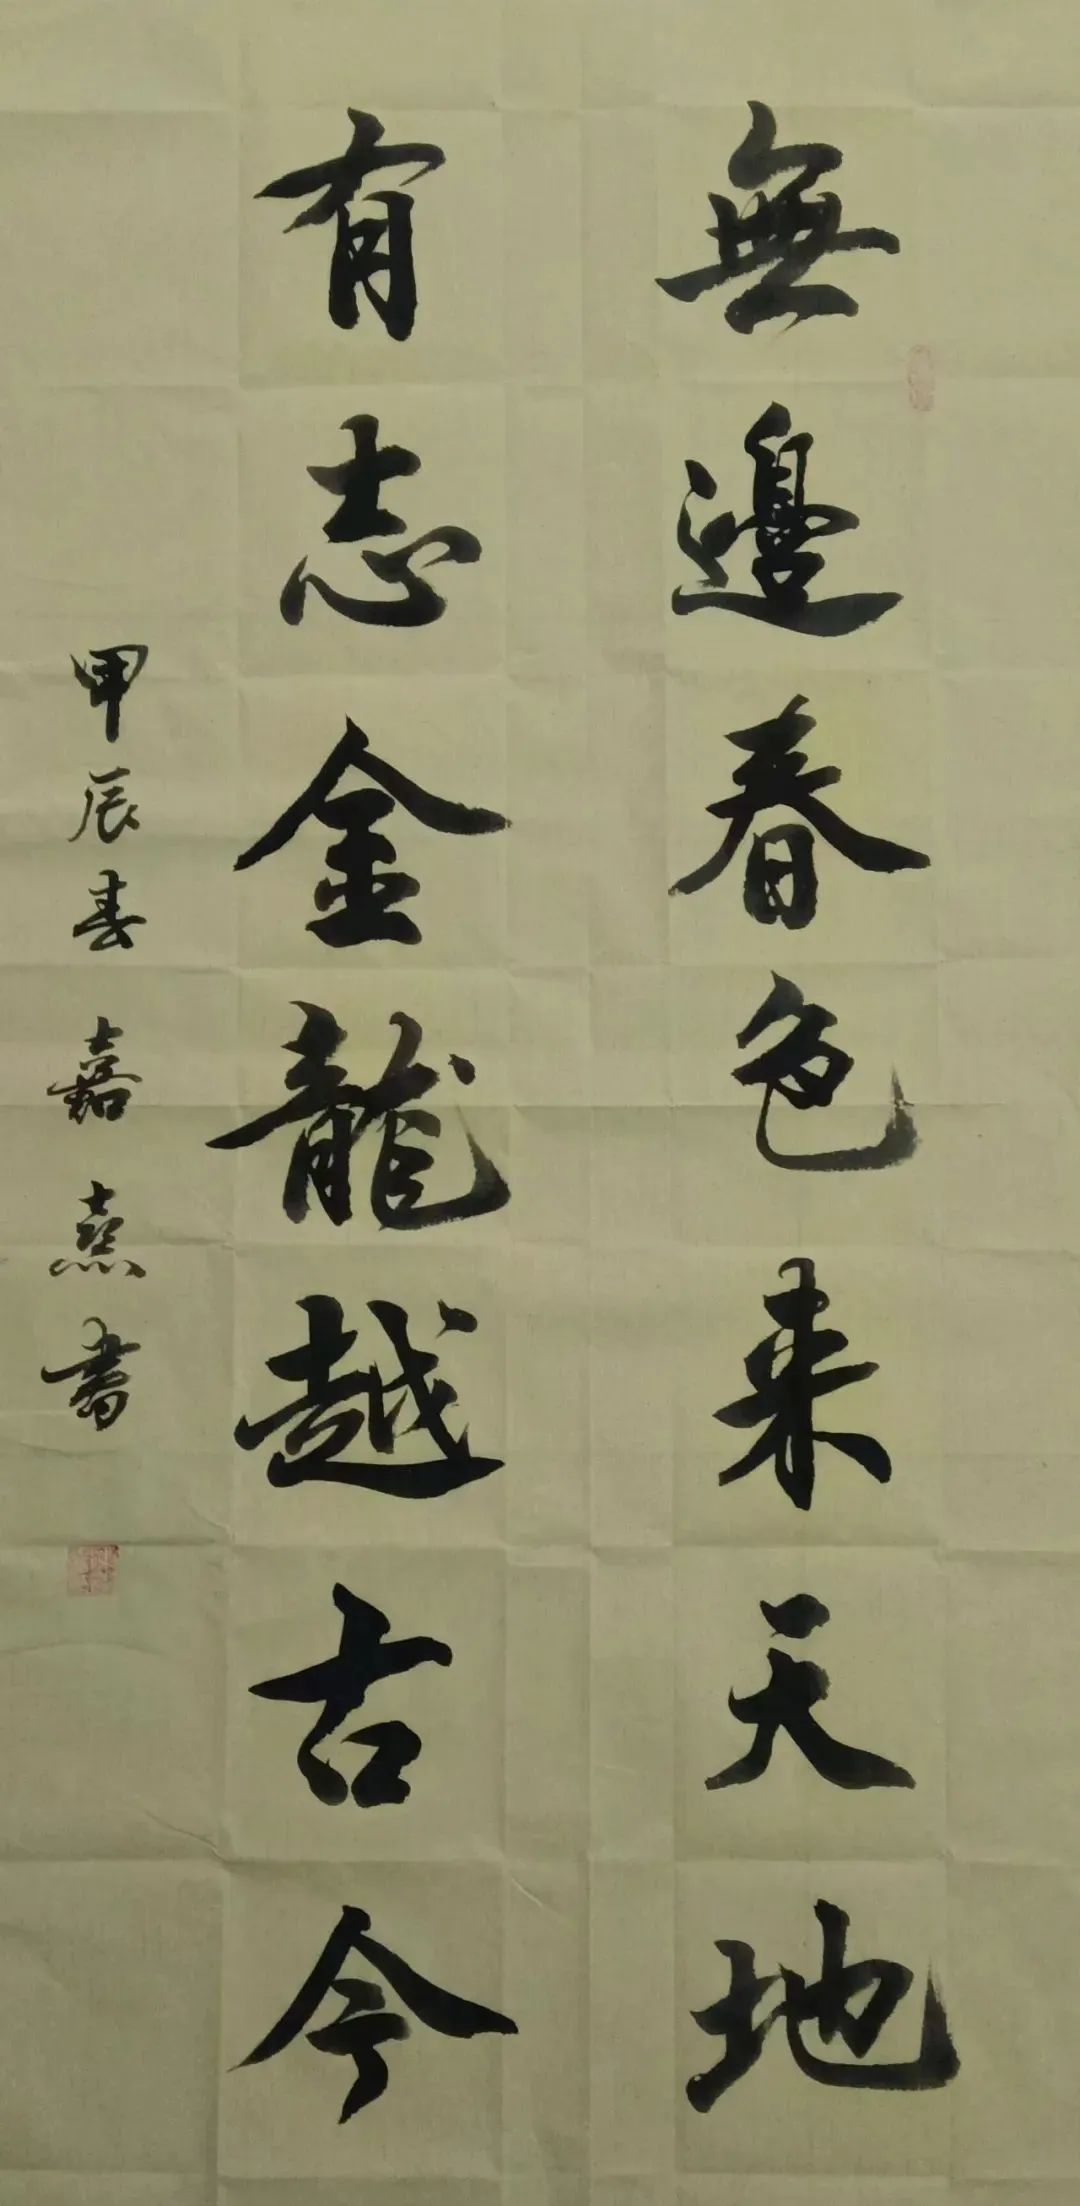 無邊春色来天地
有志金龍越古今
甲辰春 嘉熹書